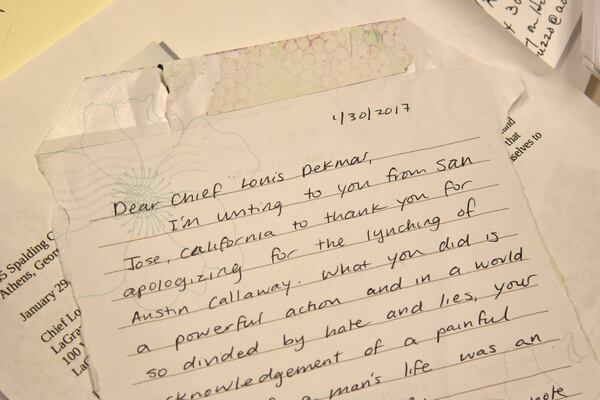 1/30/2017
Dear Chief Louis Dekmar,
I'm writing to you from San
Jose, California to thank you for
apologizing for the lynching of
Austin Callaway. What you did is
a powerful action and in a world
so divided by hate and lies, your
acknowledgement of a painful
a man's life was an
note
5 Spalding C
Athens, Geor
January 29
Chief Lo
LaGra
100
LaG
and
that
selves to